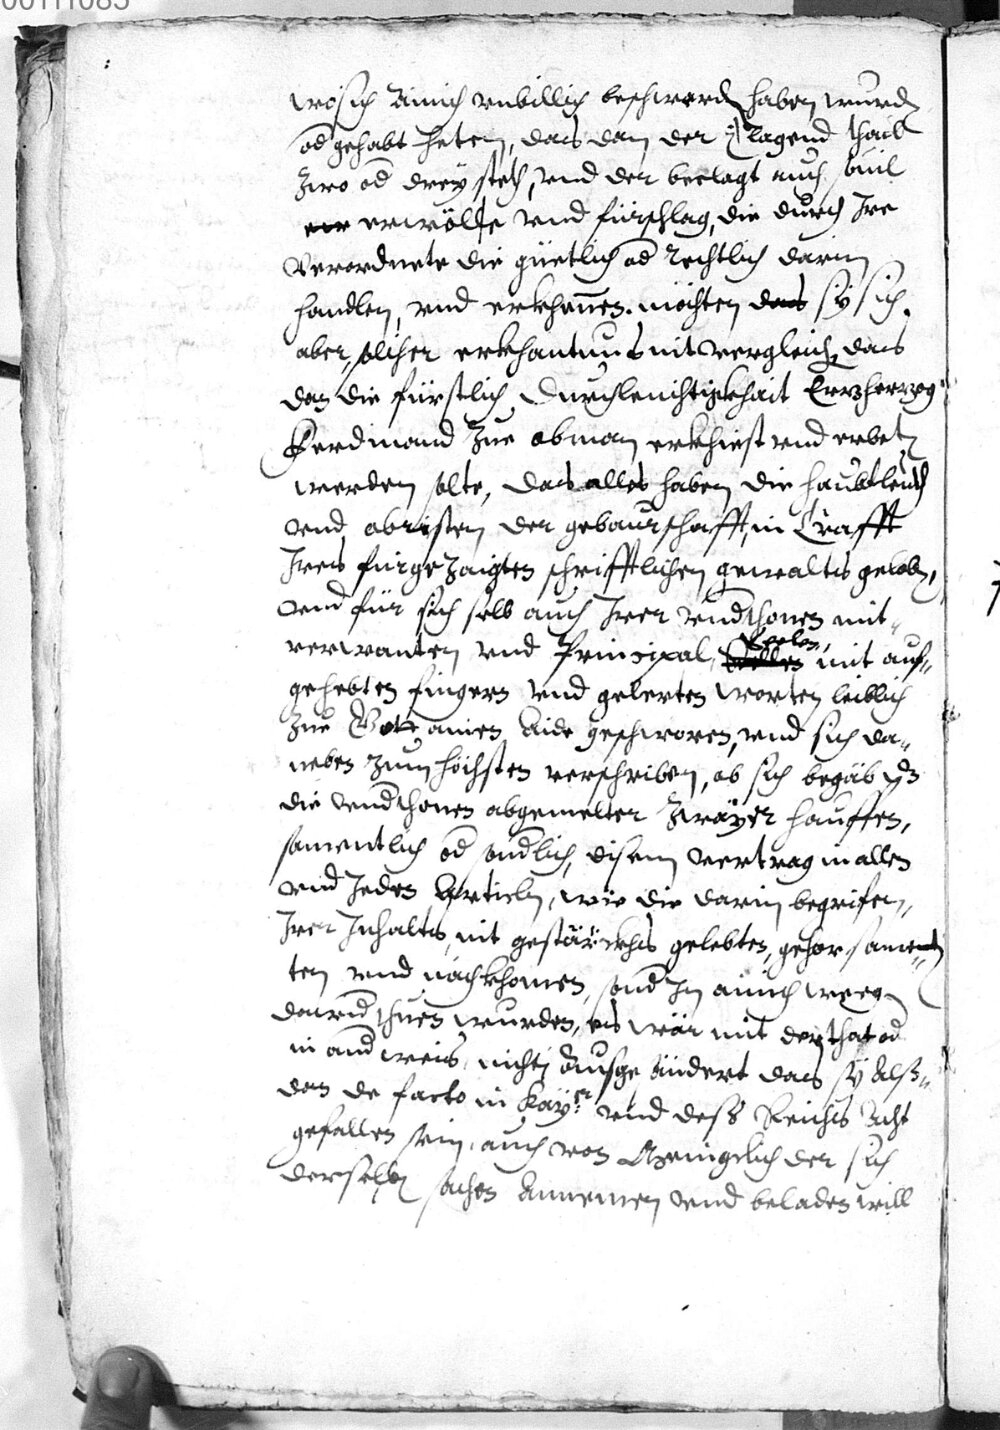 00111085
wo sich ainich unbillich beschwerd haben wurd
od gehabt heten, das dan der clagend thail
zwo od drey stett, vnd der beclagt auch souil
erwölte vnd fürschlag, die durch Ire
Verordnete die güetlich od rechtlich darin
handlen, vnd erkhennen möchten das sÿ sich
aber solicher erkhantnus nit vergleich, das
dan die fürstlich Durchleuchtigkhait Ertzherzog
Ferdinand zue obman erkhiest vnd erbet
werden solte, das alles haben die haubtleuth
vnd obristen der gebaurschafft, in Crafft
Ires fürgezaigten schrifftlichen gewalts gelobt,
vnd für sich selb auch Irer vnderthonen mit
verwanten vnd Principal, Seelen, mit auf
gehebten fingern vnd gelerten worten leiblich
zue Gott ainen Aide geschworen, vnd sich da
neben zum höchsten verschriben, ob sich begäb dz
die vnderthonen abgemelter zwaÿer hauffen,
samentlich od sondlich, disem vertrag in allen
vnd Jeden Articln, wie die darin begrifen,
Irer Inhalts, nit gestärckhs gelebten, gehorsamen
ten vnd nachkhomen, sond In ainich weeg
darwid thuen wurden, es wär mit der that od
in and weis, nichts ausgeändert das sÿ Alß
dan de facto in Kaÿ:er vnd deß Reichs Acht
gefallen sein, auch von Meniglich der sich
derselben sachen Annemen vnd beladen will